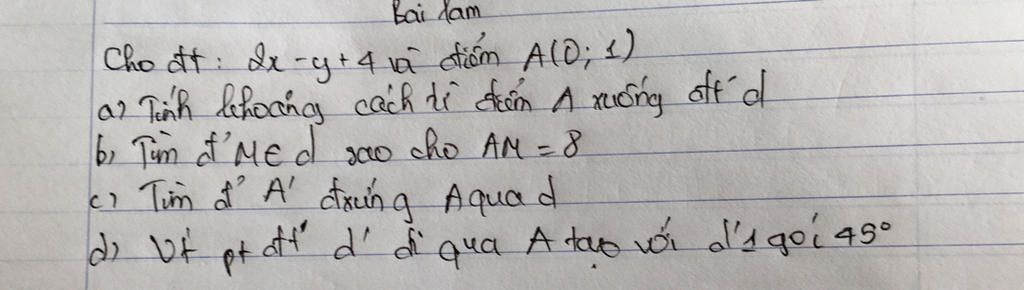 Bài làm
Cho đt : 2x - y + 4 và điểm A(0; 1)
a) Tính khoảng cách từ điểm A xuống đt d
b) Tìm đ' M ∈ d sao cho AM = 8
c) Tìm đ' A' đxứng A qua d
d) Vt pt đt' d' đi qua A tạo với d 1 góc 45°